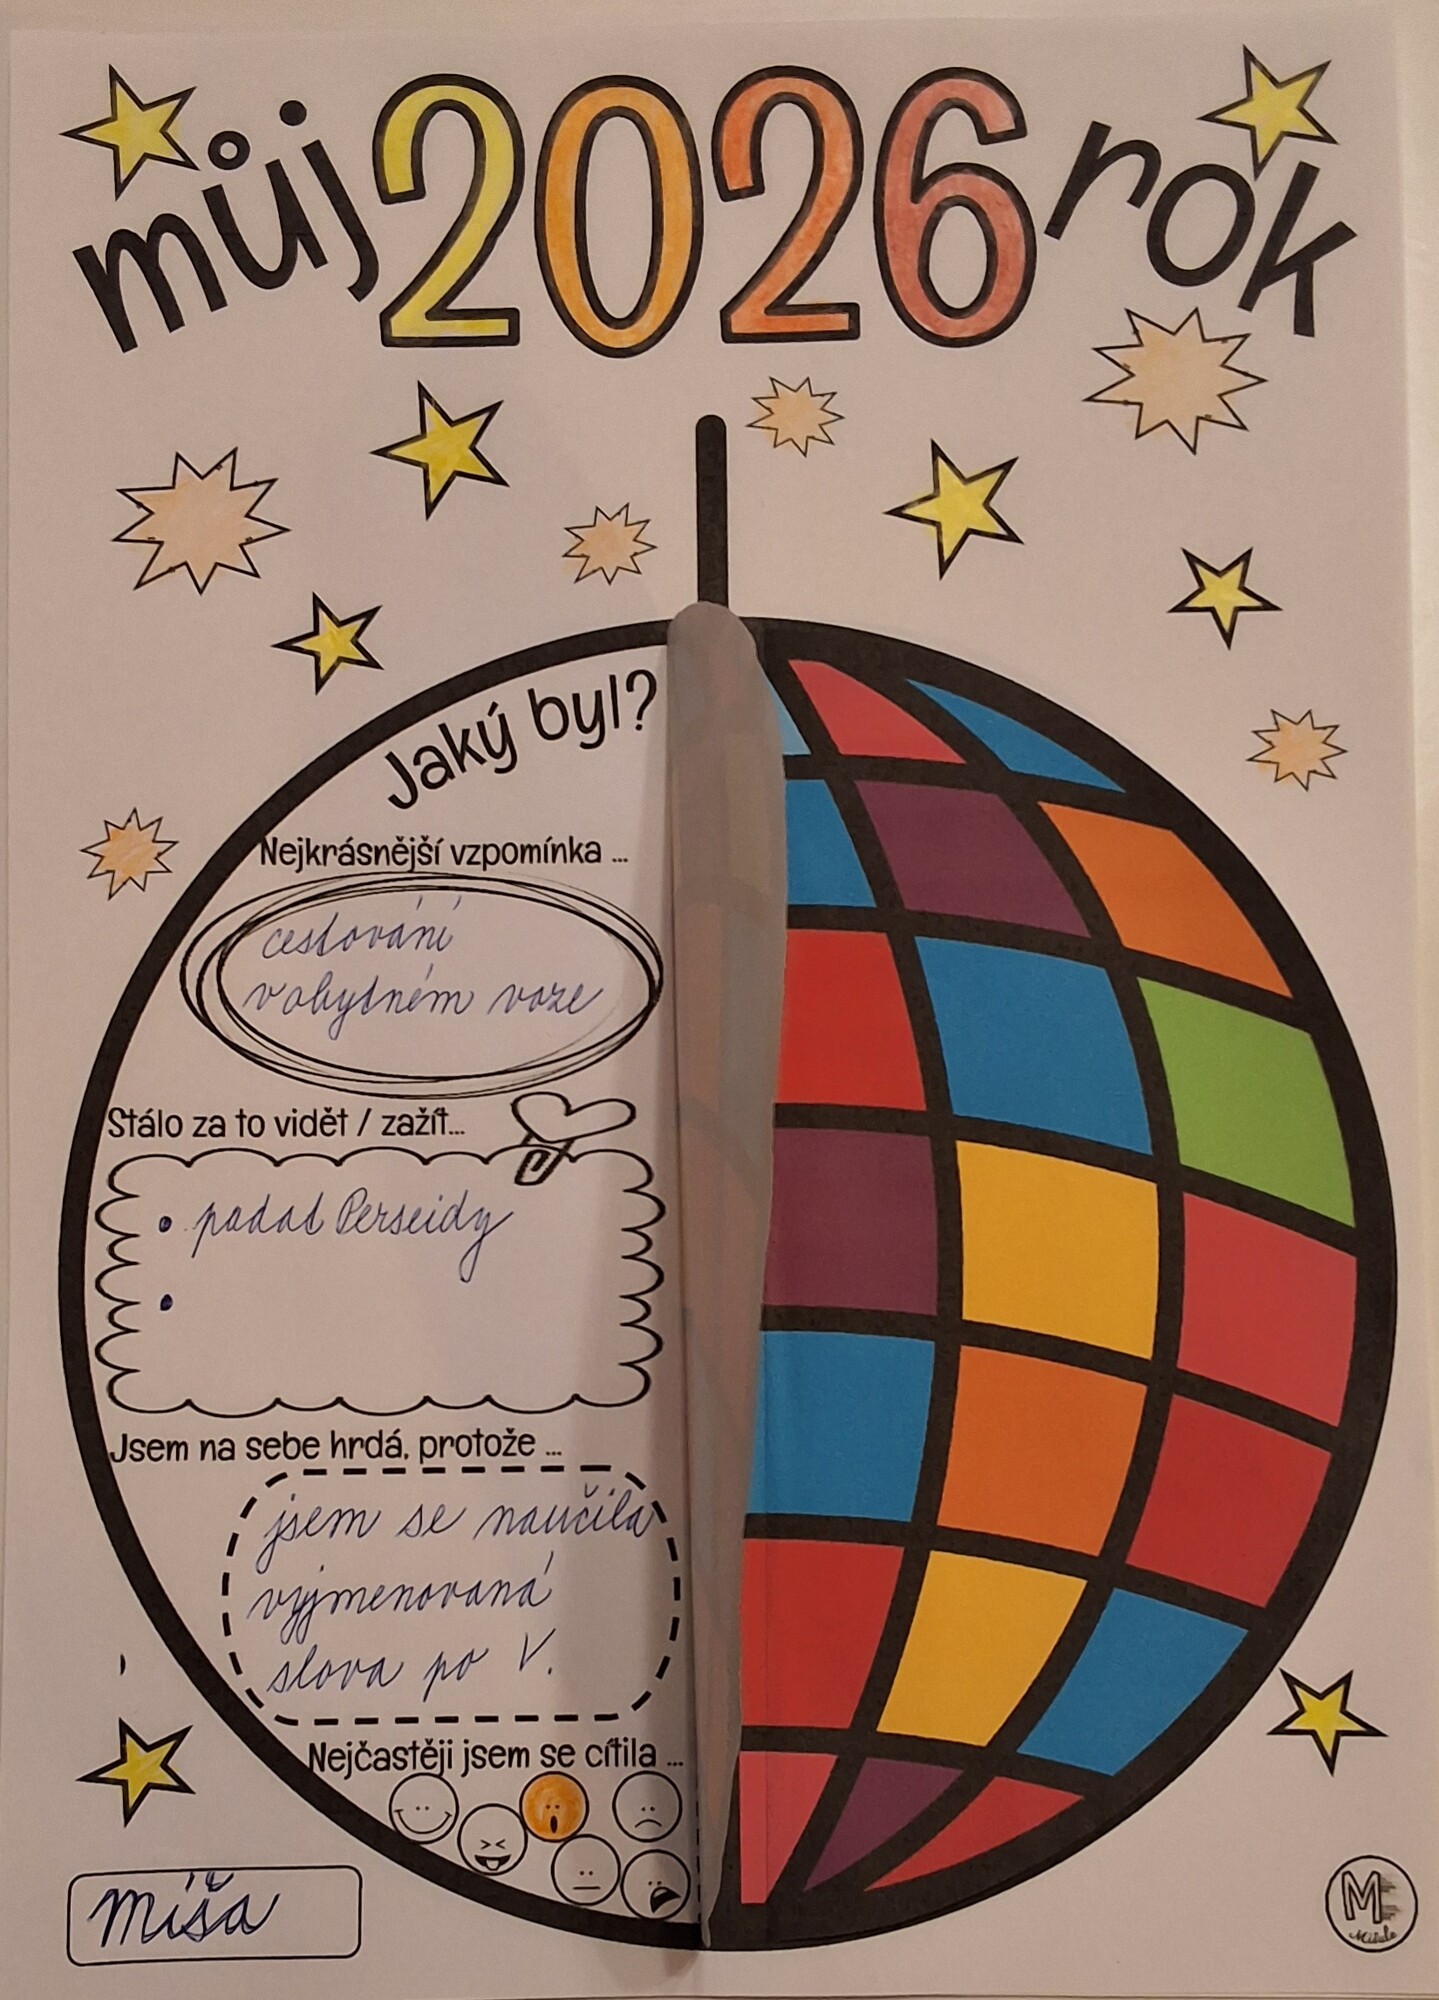 můj 2026 rok
Jaký byl?
Nejkrásnější vzpomínka ...
cestování
v obytném voze
Stálo za to vidět / zažít...
• padat Perseidy
•
Jsem na sebe hrdá, protože ...
jsem se naučila
vyjmenovaná
slova po V.
Nejčastěji jsem se cítila ...
Míša
M